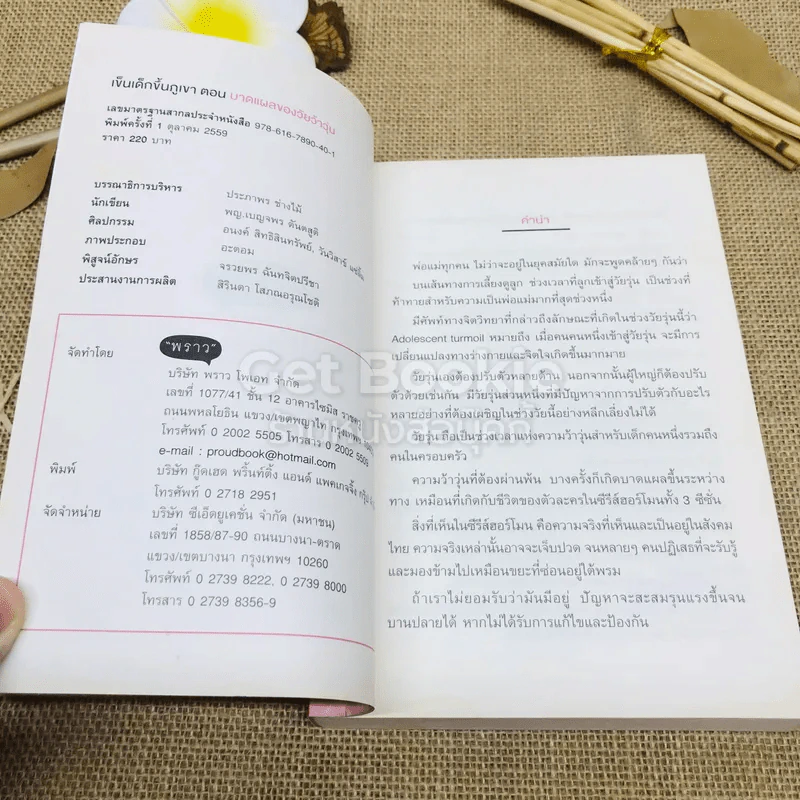 เข็นเด็กขึ้นภูเขา ตอน บาดแผลของวัยว้าวุ่น
เลขมาตรฐานสากลประจำหนังสือ 978-616-7890-40-1
พิมพ์ครั้งที่ 1 ตุลาคม 2559
ราคา 220 บาท
บรรณาธิการบริหาร ประภาพร ช่างไม้
นักเขียน พญ.เบญจพร ตันตสูติ
ศิลปกรรม อนงค์ สิทธิสินทรัพย์, วันวิสาข์
ภาพประกอบ อะตอม
พิสูจน์อักษร จรวยพร ฉันทจิตปรีชา
ประสานงานการผลิต สิรินดา โสภณอรุณโชติ
จัดทำโดย "พราว"
บริษัท พราว โพเอท จำกัด
เลขที่ 1077/41 ชั้น 12 อาคารไซมิส ราชครู
ถนนพหลโยธิน แขวง/เขตพญาไท กรุงเทพฯ
โทรศัพท์ 0 2002 5505 โทรสาร 0 2002 5509
e-mail : proudbook@hotmail.com
พิมพ์ บริษัท กู๊ดเฮด พริ้นท์ติ้ง แอนด์ แพคเกจจิ้ง กรุ๊ป
โทรศัพท์ 0 2718 2951
จัดจำหน่าย บริษัท ซีเอ็ดยูเคชั่น จำกัด (มหาชน)
เลขที่ 1858/87-90 ถนนบางนา-ตราด
แขวง/เขตบางนา กรุงเทพฯ 10260
โทรศัพท์ 0 2739 8222, 0 2739 8000
โทรสาร 0 2739 8356-9
คำนำ
พ่อแม่ทุกคน ไม่ว่าจะอยู่ในยุคสมัยใด มักจะพูดคล้ายๆ กันว่า
บนเส้นทางการเลี้ยงดูลูก ช่วงเวลาที่ลูกเข้าสู่วัยรุ่น เป็นช่วงที่
ท้าทายสำหรับความเป็นพ่อแม่มากที่สุดช่วงหนึ่ง
มีศัพท์ทางจิตวิทยาที่กล่าวถึงลักษณะที่เกิดในช่วงวัยรุ่นนี้ว่า
Adolescent turmoil หมายถึง เมื่อคนคนหนึ่งเข้าสู่วัยรุ่น จะมีการ
เปลี่ยนแปลงทางร่างกายและจิตใจเกิดขึ้นมากมาย
วัยรุ่นเองต้องปรับตัวมากแล้ว นอกจากนั้นผู้ใหญ่ก็ต้องปรับ
ตัวด้วยเช่นกัน มีวัยรุ่นส่วนหนึ่งที่มีปัญหาจากการปรับตัวกับอะไร
หลายอย่างที่ต้องเผชิญในช่วงวัยนี้อย่างหลีกเลี่ยงไม่ได้
วัยรุ่น ถือเป็นช่วงเวลาแห่งความว้าวุ่นสำหรับเด็กคนหนึ่งรวมถึง
คนในครอบครัว
ความว้าวุ่นที่ต้องผ่านพ้น บางครั้งก็เกิดบาดแผลขึ้นระหว่าง
ทาง เหมือนที่เกิดกับชีวิตของตัวละครในซีรีส์ฮอร์โมนทั้ง 3 ซีซั่น
สิ่งที่เห็นในซีรีส์ฮอร์โมน คือความจริงที่เห็นและเป็นอยู่ในสังคม
ไทย ความจริงเหล่านั้นอาจจะเจ็บปวด จนหลายๆ คนปฏิเสธที่จะรับรู้
และมองข้ามไปเหมือนขยะที่ซ่อนอยู่ใต้พรม
ถ้าเราไม่ยอมรับว่ามันมีอยู่ ปัญหาจะสะสมรุนแรงขึ้นจน
บานปลายได้ หากไม่ได้รับการแก้ไขและป้องกัน
Get Bookie
ร้านหนังสือนุ๊กกี้